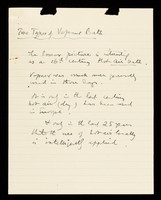 Two Types of Vapour Bath
The Roman picture is identity
as a 16th century Hot Air Bath.
Vapour was much more generally
used in those days.
It is only in the last century
hot air (dry) has been used
in Europe.
& only in the last 25 years
that the use of hot air locally
is intelligently applied.